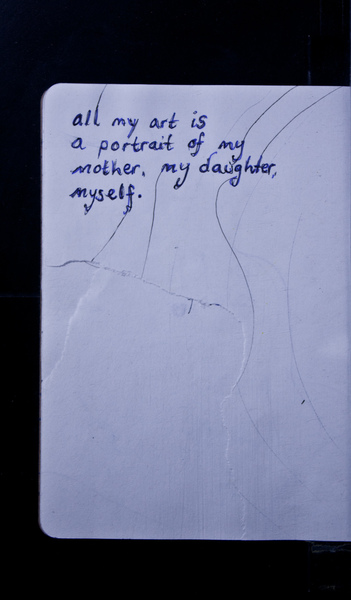 all my art is
a portrait of my
mother, my daughter,
myself.